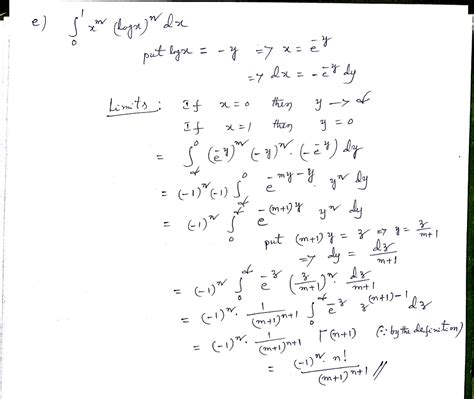 e) ∫₀¹ xᵐ (log x)ⁿ dx
put log x = -y => x = e^-y
=> dx = -e^-y dy
Limits : If x = 0 then y → ∞
If x = 1 then y = 0
= ∫_∞^0 (e^-y)^m (-y)^n . (-e^-y) dy
= (-1)^n (-1) ∫_∞^0 e^-my-y . y^n dy
= (-1)^n ∫_0^∞ e^-(m+1)y y^n dy
put (m+1) y = z => y = z/m+1
=> dy = dz/m+1
= (-1)^n ∫_0^∞ e^-z (z/m+1)^n . dz/m+1
= (-1)^n . 1/(m+1)^n+1 ∫_0^∞ e^-z z^(n+1)-1 dz
= (-1)^n . 1/(m+1)^n+1 Γ(n+1) (∵ by the definition)
= (-1)^n . n!/(m+1)^n+1 //